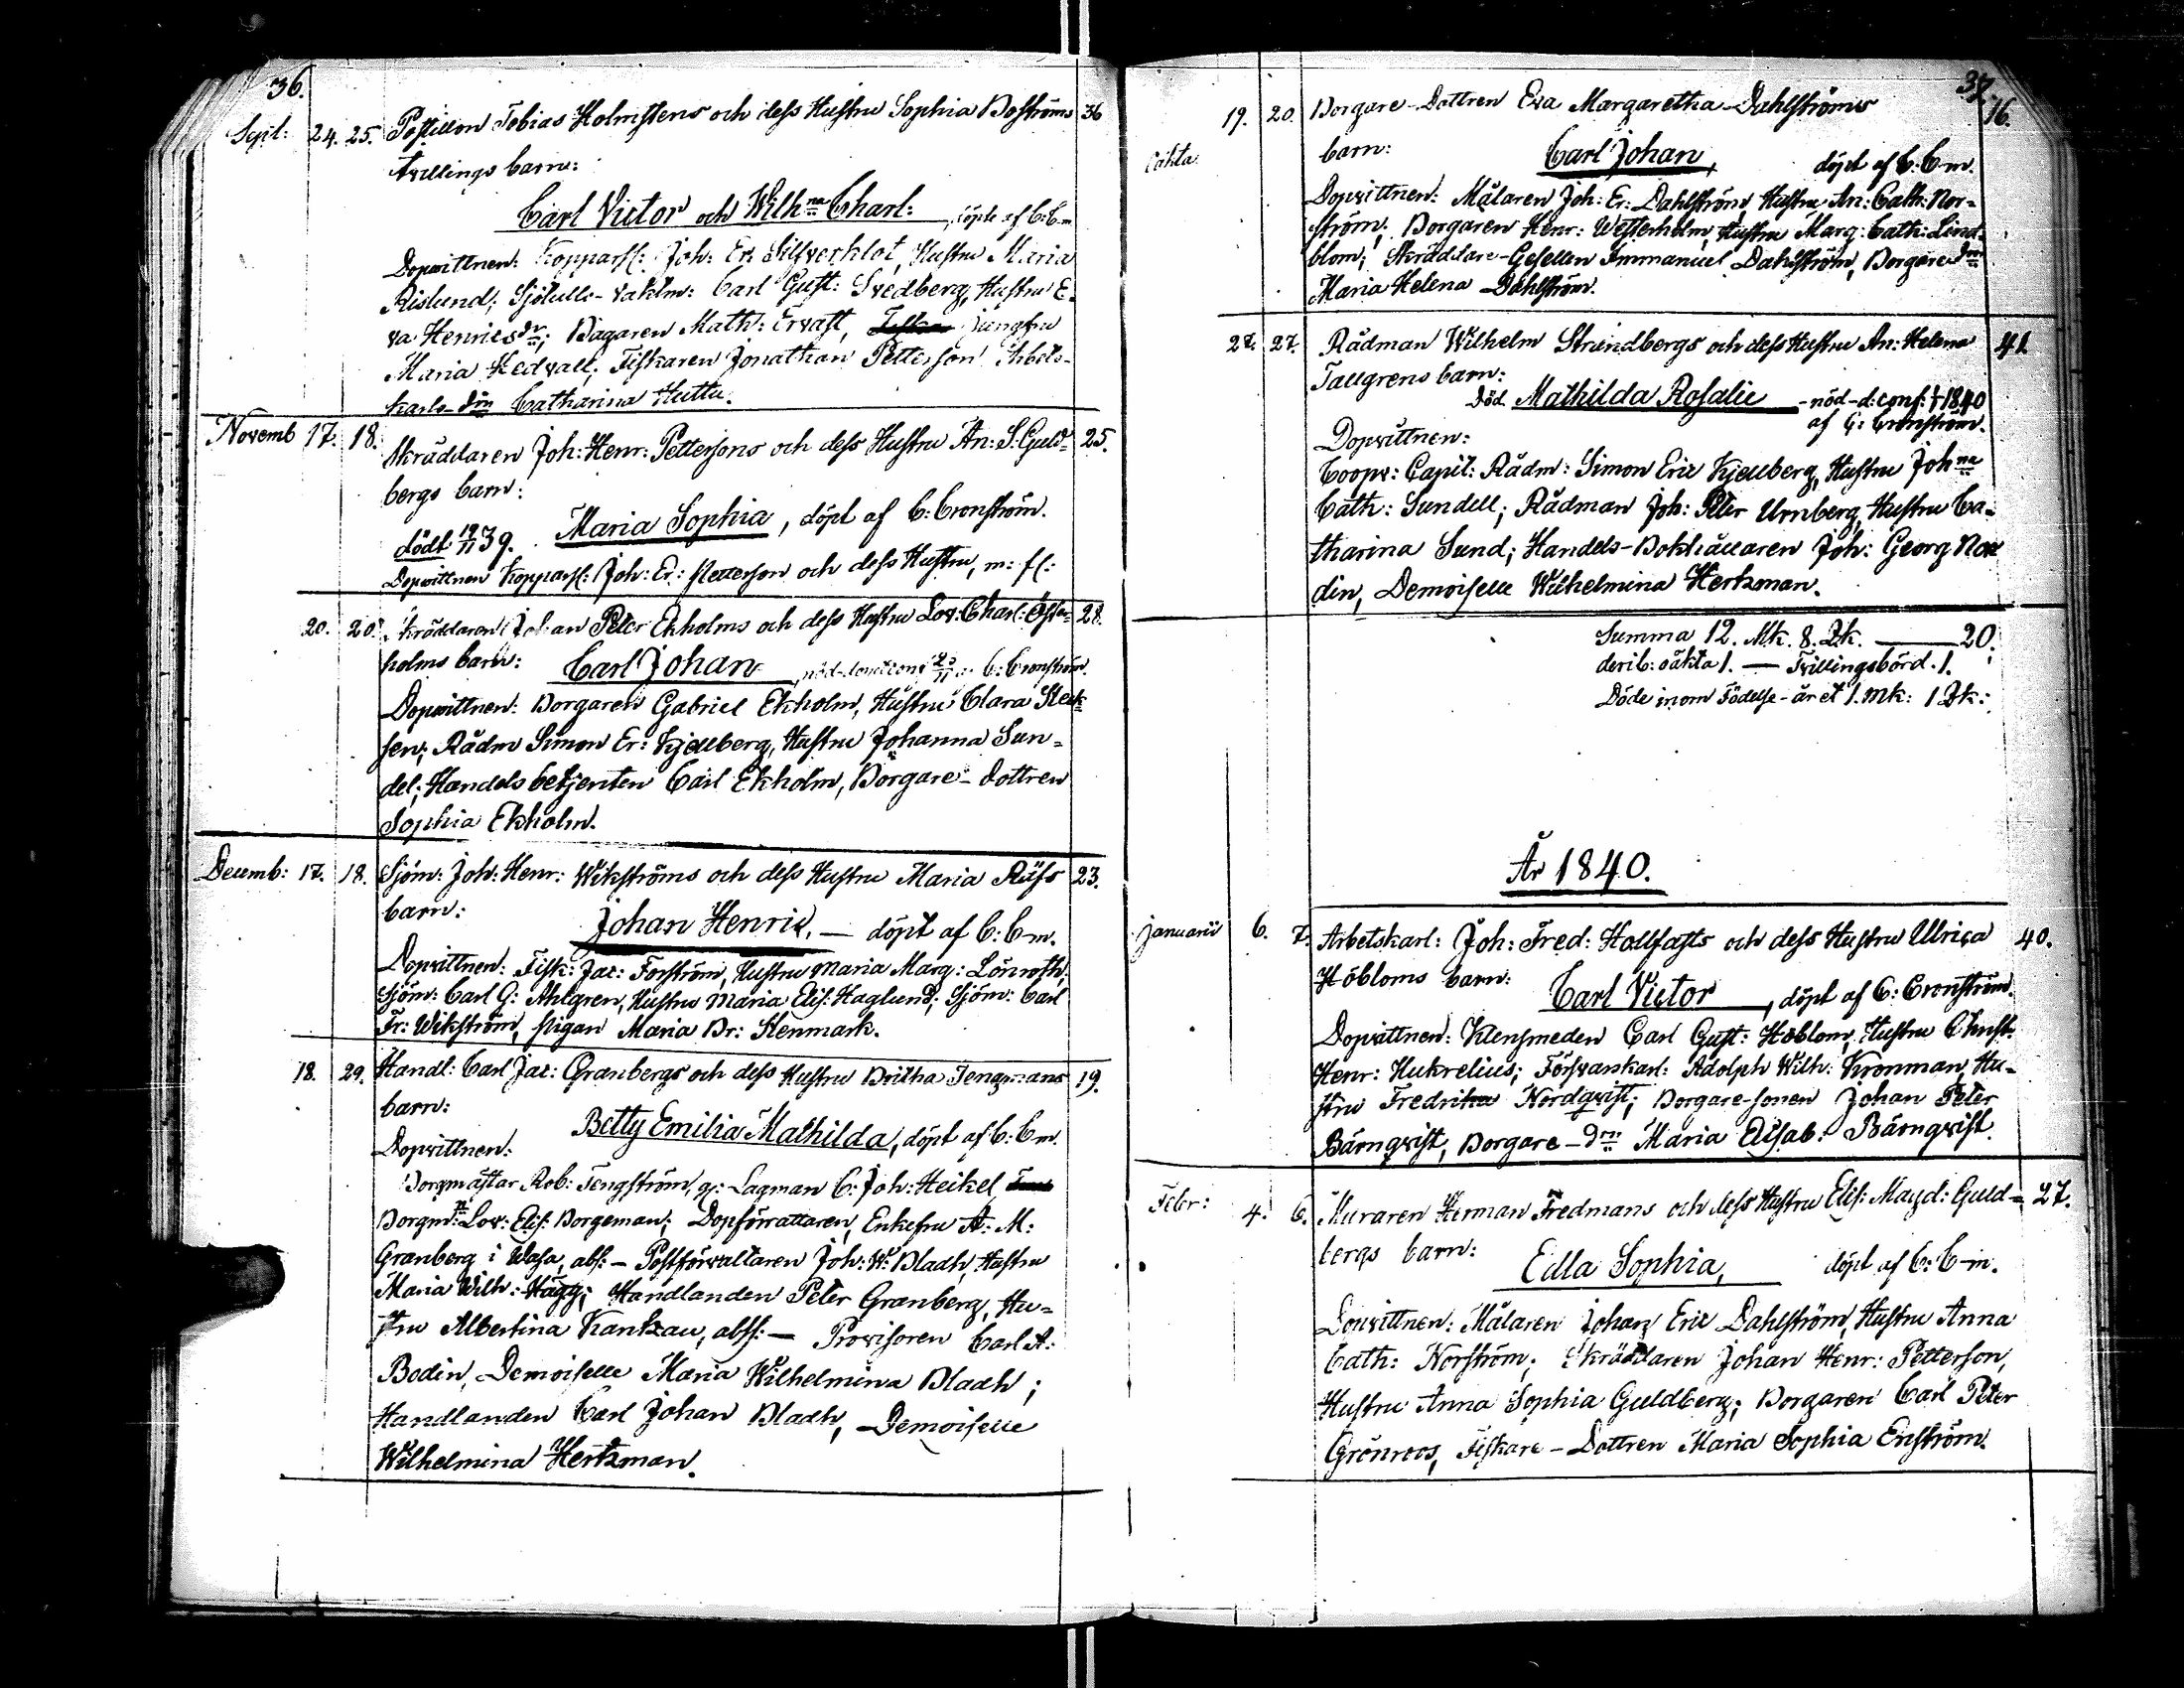 36.
Sept: 24. 25. Postillon Tobias Holmstens och dess Hustru Sophia Boströms 36
tvillings barn:
Carl Victor och Wilhna Charl: döpte af C: C-m
Dopvittnen: Kopparsl: Joh: Er: Silfverklot, Hustru Maria
Rislund; Sjötulls-vaktm: Carl Gust: Svedberg, Hustru E-
va Henricsdr; Bagaren Math: Ervast, jungfru
Maria Hedvall; Fiskaren Jonathan Petterson Arbets-
karls-dn Catharina Huttu.
Novemb 17. 18. Skräddaren Joh: Henr: Pettersons och dess Hustru An: S. Guld- 25.
bergs barn:
Maria Sophia, döpt af C: Cronström.
dödt 19/11 39.
Dopvittnen Kopparsl: Joh: Er: Petterson och dess Hustru, m: fl:
20. 20. Skräddaren Johan Peter Ekholms och dess Hustru Lov: Charl: Öster- 28.
holms barn: Carl Johan C: Cronström.
Dopvittnen: Borgaren Gabriel Ekholm, Hustru Clara Steck-
sen; Rådm Simon Er: Kjellberg, Hustru Johanna Sun-
del; Handels betjenten Carl Ekholm, Borgare-dottren
Sophia Ekholm.
Decemb: 17. 18. Sjöm: Joh: Henr: Wikströms och dess Hustru Maria Räfs 23.
barn: Johan Henric. — döpt af C: C-m.
Dopvittnen: Fisk: Jac: Forström, Hustru Maria Marg: Lönroth;
Sjöm: Carl G: Ahlgren, Hustru Maria Elis: Haglund; Sjöm: Carl
Fr: Wikström, pigan Maria Br: Stenmark.
18. 29. Handl: Carl Jac: Granbergs och dess Hustru Britha Tengmans 19.
barn:
Betty Emilia Mathilda, döpt af C: C-m.
Dopvittnen:
Borgmästar Rob: Tengström, gf: Lagman C: Joh: Heikel,
Borgm: Lov: Elis: Borgeman; Dopförrattaren, Enkefru A: M:
Granberg i Wasa, abs: — Postförvaltaren Joh: W: Bladh, Hustru
Maria Wilh: Hägg; Handlanden Peter Granberg, Hu-
stru Albertina Kantzau, abss: — Provisoren Carl A:
Bodin, Demoiselle Maria Wilhelmina Bladh;
Handlanden Carl Johan Bladh, Demoiselle
Wilhelmina Hertzman.
37.
19. 20. Borgare-Dottren Eva Margaretha Dahlströms 16.
oäkta
barn: Carl Johan, döpt af C: C-m.
Dopvittnen: Målaren Joh: Er: Dahlström, Hustru An: Cath: Nor-
ström; Borgaren Henr: Westerholm, Hustru Marg: Cath: Lind-
blom; Skräddare-Gesellen Immanuel Dahlström, Borgaredn
Maria Helena Dahlström.
27. 27. Rådman Wilhelm Strandbergs och dess Hustru An: Helena 41
Tallgrens barn:
Död Mathilda Rosalie - nöd-d: conf: 1/1 1840
af C: Cronström.
Dopvittnen:
Coopv: Capit: Rådm: Simon Eric Kjellberg, Hustru Johna
Cath: Sundell; Rådman Joh: Peter Urnberg, Hustru Ca-
tharina Sund; Handels-Bokhållaren Joh: Georg Nor
din, Demoiselle Wilhelmina Hertzman.
Summa 12. Mk. 8. Qk. — 20.
derib: oäkta 1. — Tvillingsbörd. 1.
Döde inom Födelse-året 1. Mk: 1 Qk:
År 1840.
Januarii 6. 7. Arbetskarl: Joh: Fred: Hallfasts och dess Hustru Ulrica 40.
Höbloms barn: Carl Victor, döpt af C: Cronström.
Dopvittnen: Klensmeden Carl Gust: Höblom, Hustru Christ:
Henr: Hukrelius; Försvarskarl: Adolph Wilh: Kronman, Hu-
stru Fredrika Nordqvist; Borgare-sonen Johan Peter
Bärnqvist, Borgare-drn Maria Elisab: Bärnqvist.
Febr: 4. 6. Muraren Herman Fredmans och dess Hustru Elis: Magd: Guld- 27.
bergs barn:
Edla Sophia, döpt af C: C-m.
Dopvittnen: Målaren Johan Eric Dahlström, Hustru Anna
Cath: Norström; Skräddaren Johan Henr: Petterson,
Hustru Anna Sophia Guldberg; Borgaren Carl Peter
Grönroos, Fiskare-Dottren Maria Sophia Enström.